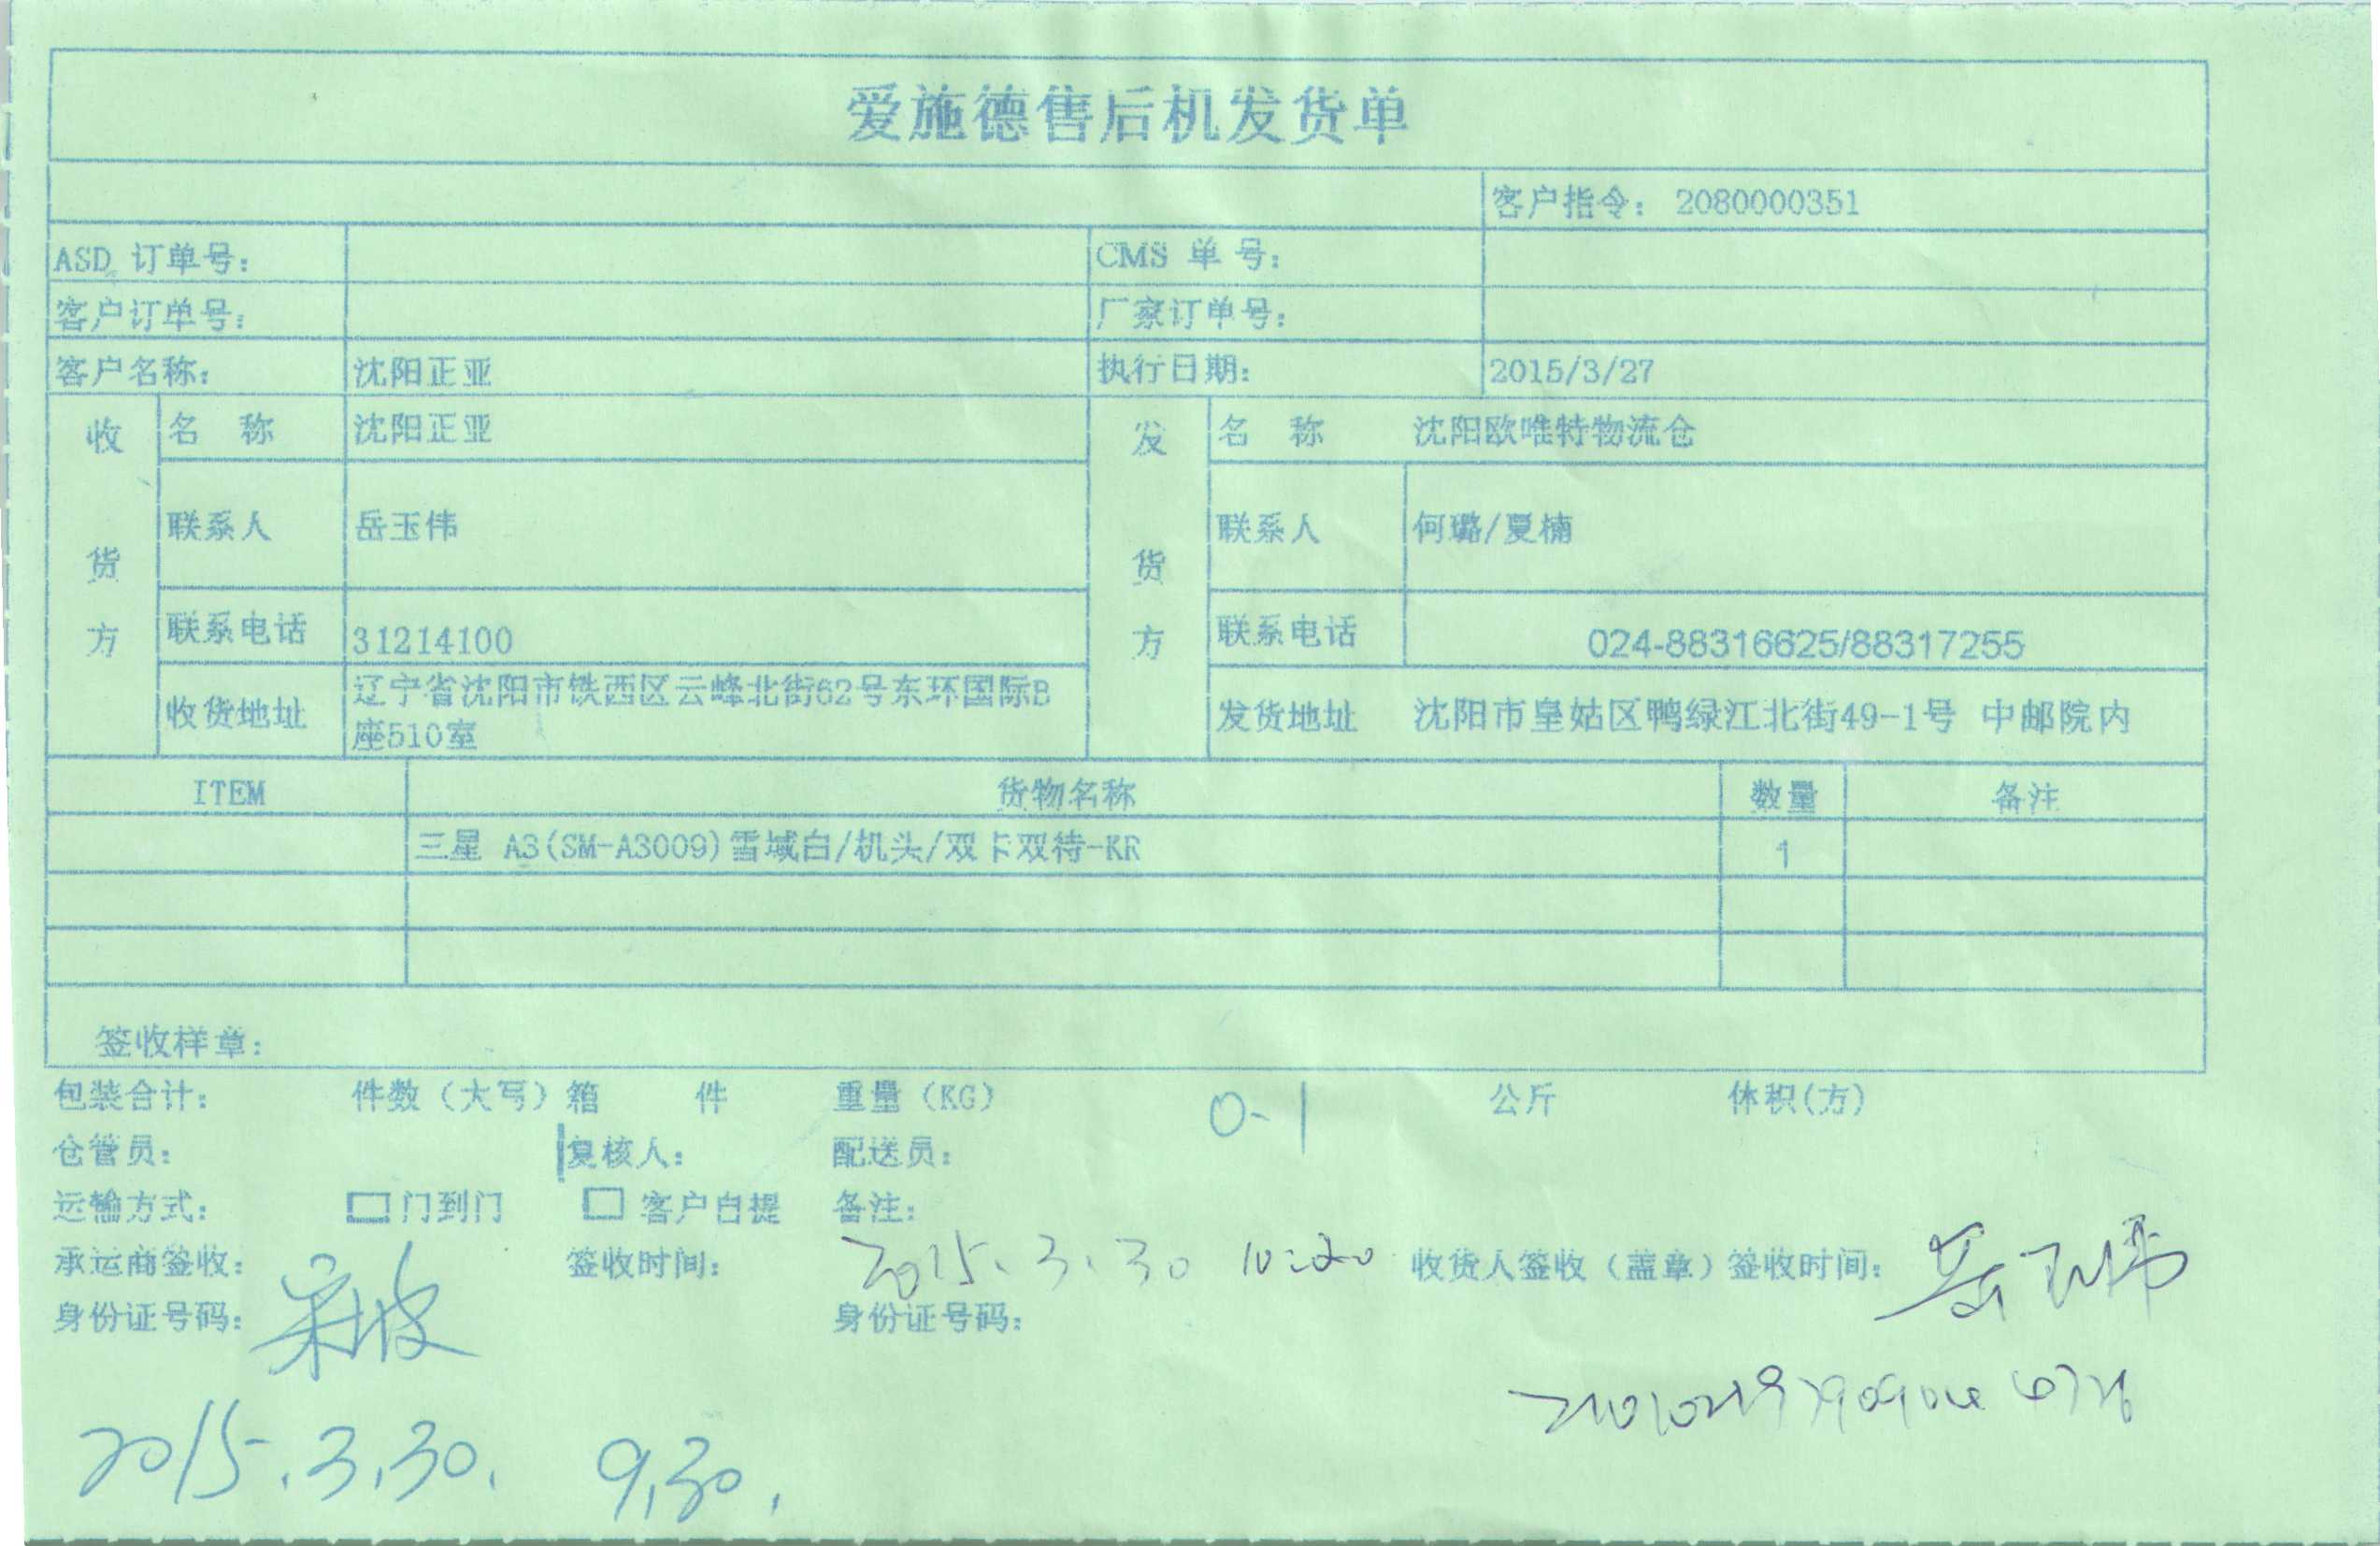 爱施德售后机发货单
客户指令： 2080000351
ASD 订单号： CMS 单 号：
客户订单号： 厂家订单号：
客户名称： 沈阳正亚 执行日期： 2015/3/27
收货方 发货方
名 称 沈阳正亚 名 称 沈阳欧唯特物流仓
联系人 岳玉伟 联系人 何璐/夏楠
联系电话 31214100 联系电话 024-88316625/88317255
收货地址 辽宁省沈阳市铁西区云峰北街62号东环国际B
座510室
发货地址 沈阳市皇姑区鸭绿江北街49-1号 中邮院内
ITEM 货物名称 数量 备注
三星 A3(SM-A3009)雪域白/机头/双卡双待-KR 1
签收样章：
包装合计： 件数（大写）箱 件 重量（KG） 0-1 公斤 体积(方)
仓管员： 复核人： 配送员：
运输方式： 门到门 客户自提 备注：
承运商签收： 签收时间： 2015.3.30 10:20 收货人签收（盖章）签收时间： 岳玉伟
身份证号码： 身份证号码：
2015.3.30. 9,30.